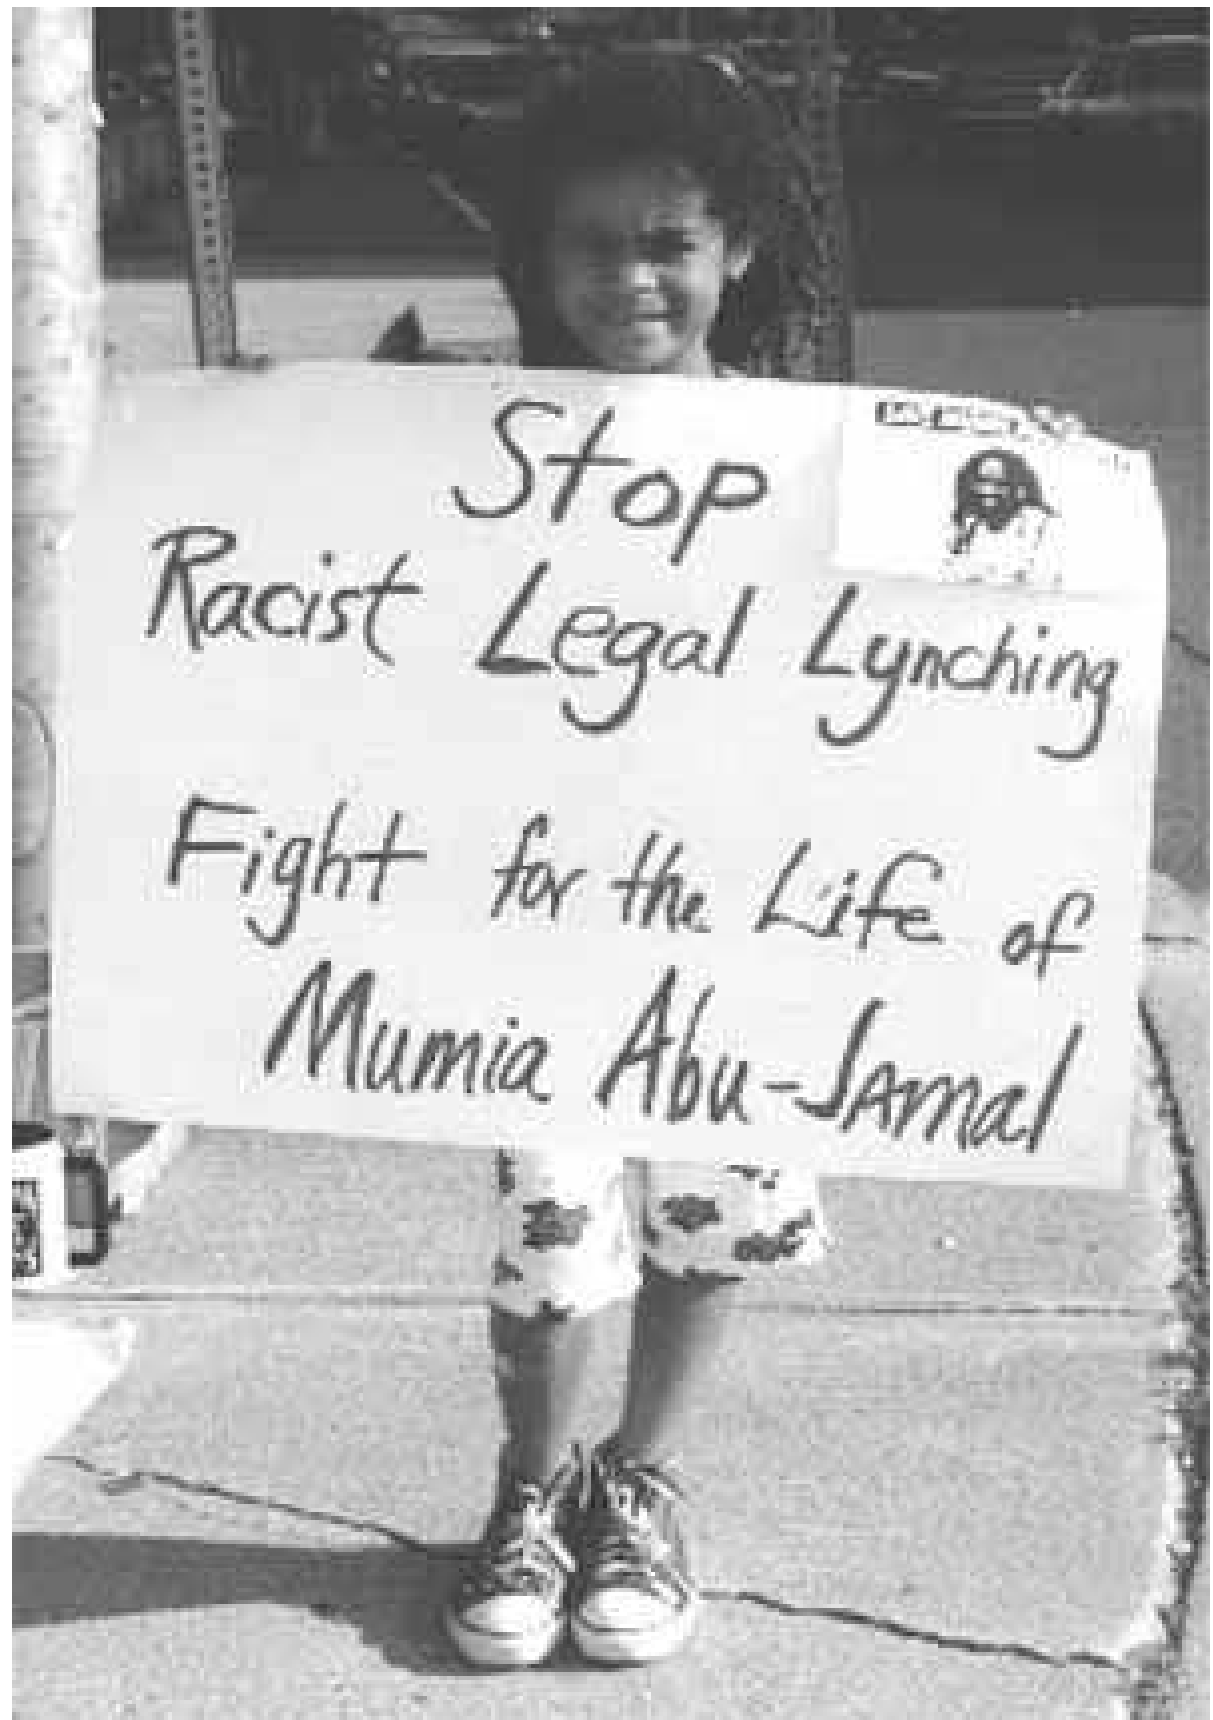 Stop
Racist Legal Lynching
Fight for the Life of
Mumia Abu-Jamal